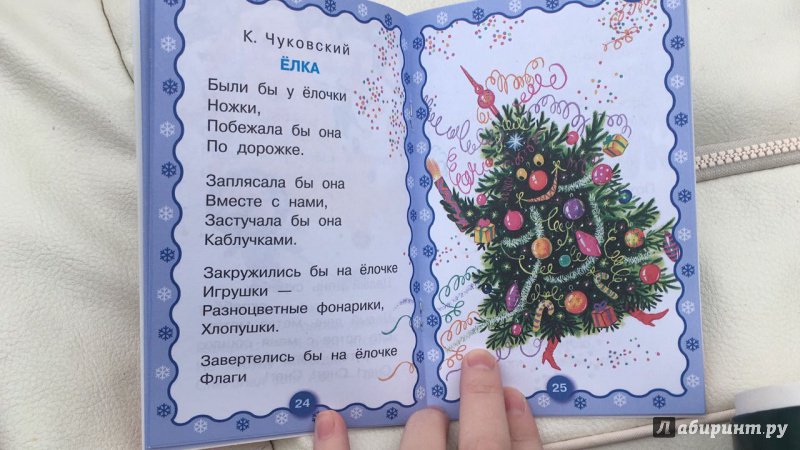 К. Чуковский
ЁЛКА
Были бы у ёлочки
Ножки,
Побежала бы она
По дорожке.
Заплясала бы она
Вместе с нами,
Застучала бы она
Каблучками.
Закружились бы на ёлочке
Игрушки —
Разноцветные фонарики,
Хлопушки.
Завертелись бы на ёлочке
Флаги
24
25
Лабиринт.ру